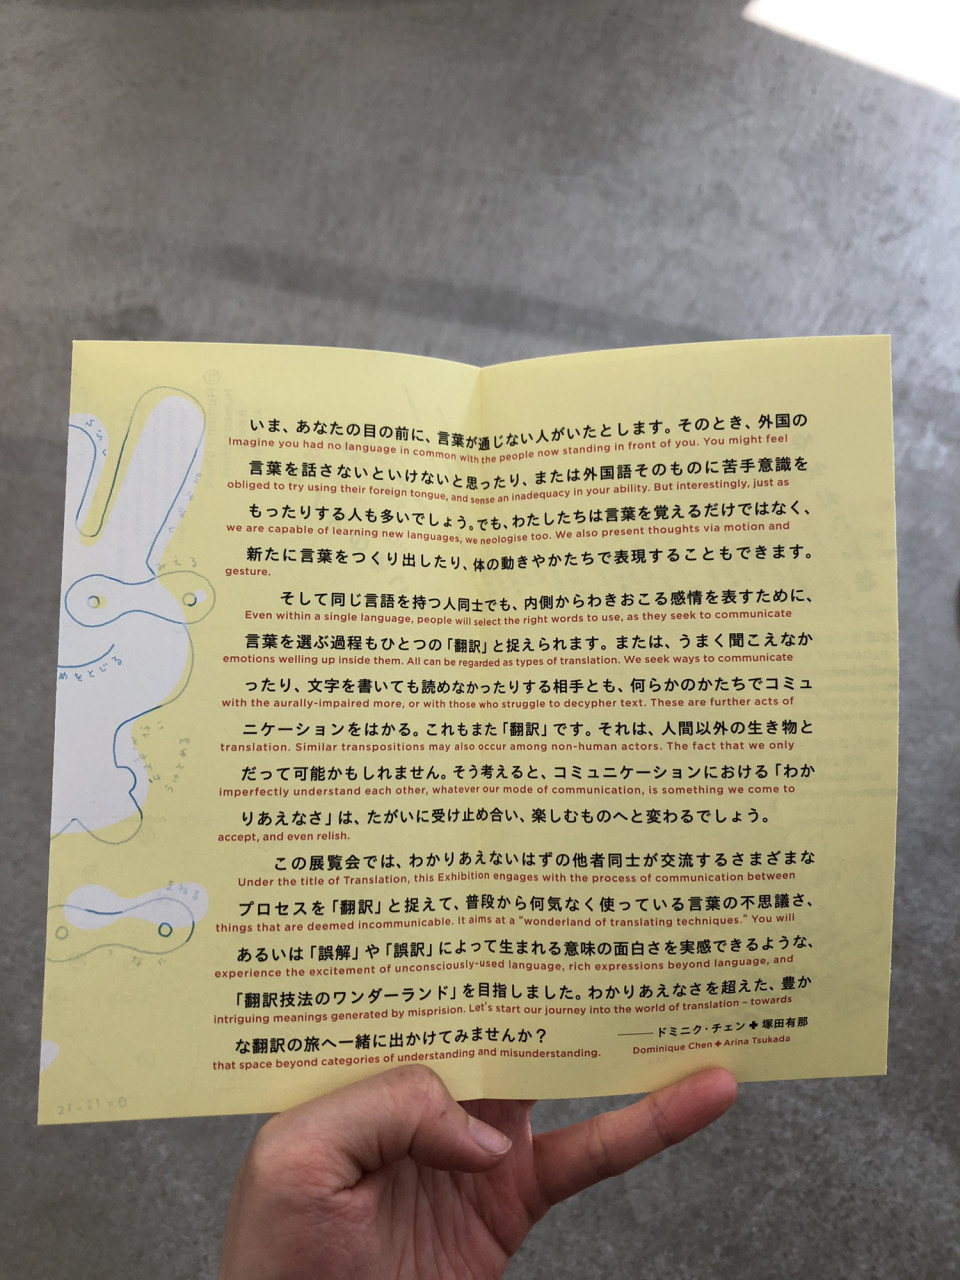 いま、あなたの目の前に、言葉が通じない人がいたとします。そのとき、外国の
Imagine you had no language in common with the people now standing in front of you. You might feel
言葉を話さないといけないと思ったり、または外国語そのものに苦手意識を
obliged to try using their foreign tongue, and sense an inadequacy in your ability. But interestingly, just as
もったりする人も多いでしょう。でも、わたしたちは言葉を覚えるだけではなく、
we are capable of learning new languages, we neologise too. We also present thoughts via motion and
新たに言葉をつくり出したり、体の動きやかたちで表現することもできます。
gesture.
そして同じ言語を持つ人同士でも、内側からわきおこる感情を表すために、
Even within a single language, people will select the right words to use, as they seek to communicate
言葉を選ぶ過程もひとつの「翻訳」と捉えられます。または、うまく聞こえなか
emotions welling up inside them. All can be regarded as types of translation. We seek ways to communicate
ったり、文字を書いても読めなかったりする相手とも、何らかのかたちでコミュ
with the aurally-impaired more, or with those who struggle to decypher text. These are further acts of
ニケーションをはかる。これもまた「翻訳」です。それは、人間以外の生き物と
translation. Similar transpositions may also occur among non-human actors. The fact that we only
だって可能かもしれません。そう考えると、コミュニケーションにおける「わか
imperfectly understand each other, whatever our mode of communication, is something we come to
りあえなさ」は、たがいに受け止め合い、楽しむものへと変わるでしょう。
accept, and even relish.
この展覧会では、わかりあえないはずの他者同士が交流するさまざまな
Under the title of Translation, this Exhibition engages with the process of communication between
プロセスを「翻訳」と捉えて、普段から何気なく使っている言葉の不思議さ、
things that are deemed incommunicable. It aims at a “wonderland of translating techniques.” You will
あるいは「誤解」や「誤訳」によって生まれる意味の面白さを実感できるような、
experience the excitement of unconsciously-used language, rich expressions beyond language, and
「翻訳技法のワンダーランド」を目指しました。わかりあえなさを超えた、豊か
intriguing meanings generated by misprision. Let's start our journey into the world of translation – towards
な翻訳の旅へ一緒に出かけてみませんか？
that space beyond categories of understanding and misunderstanding.
――ドミニク・チェン✚塚田有那
Dominique Chen ✚ Arina Tsukada
みえる
めをとじる